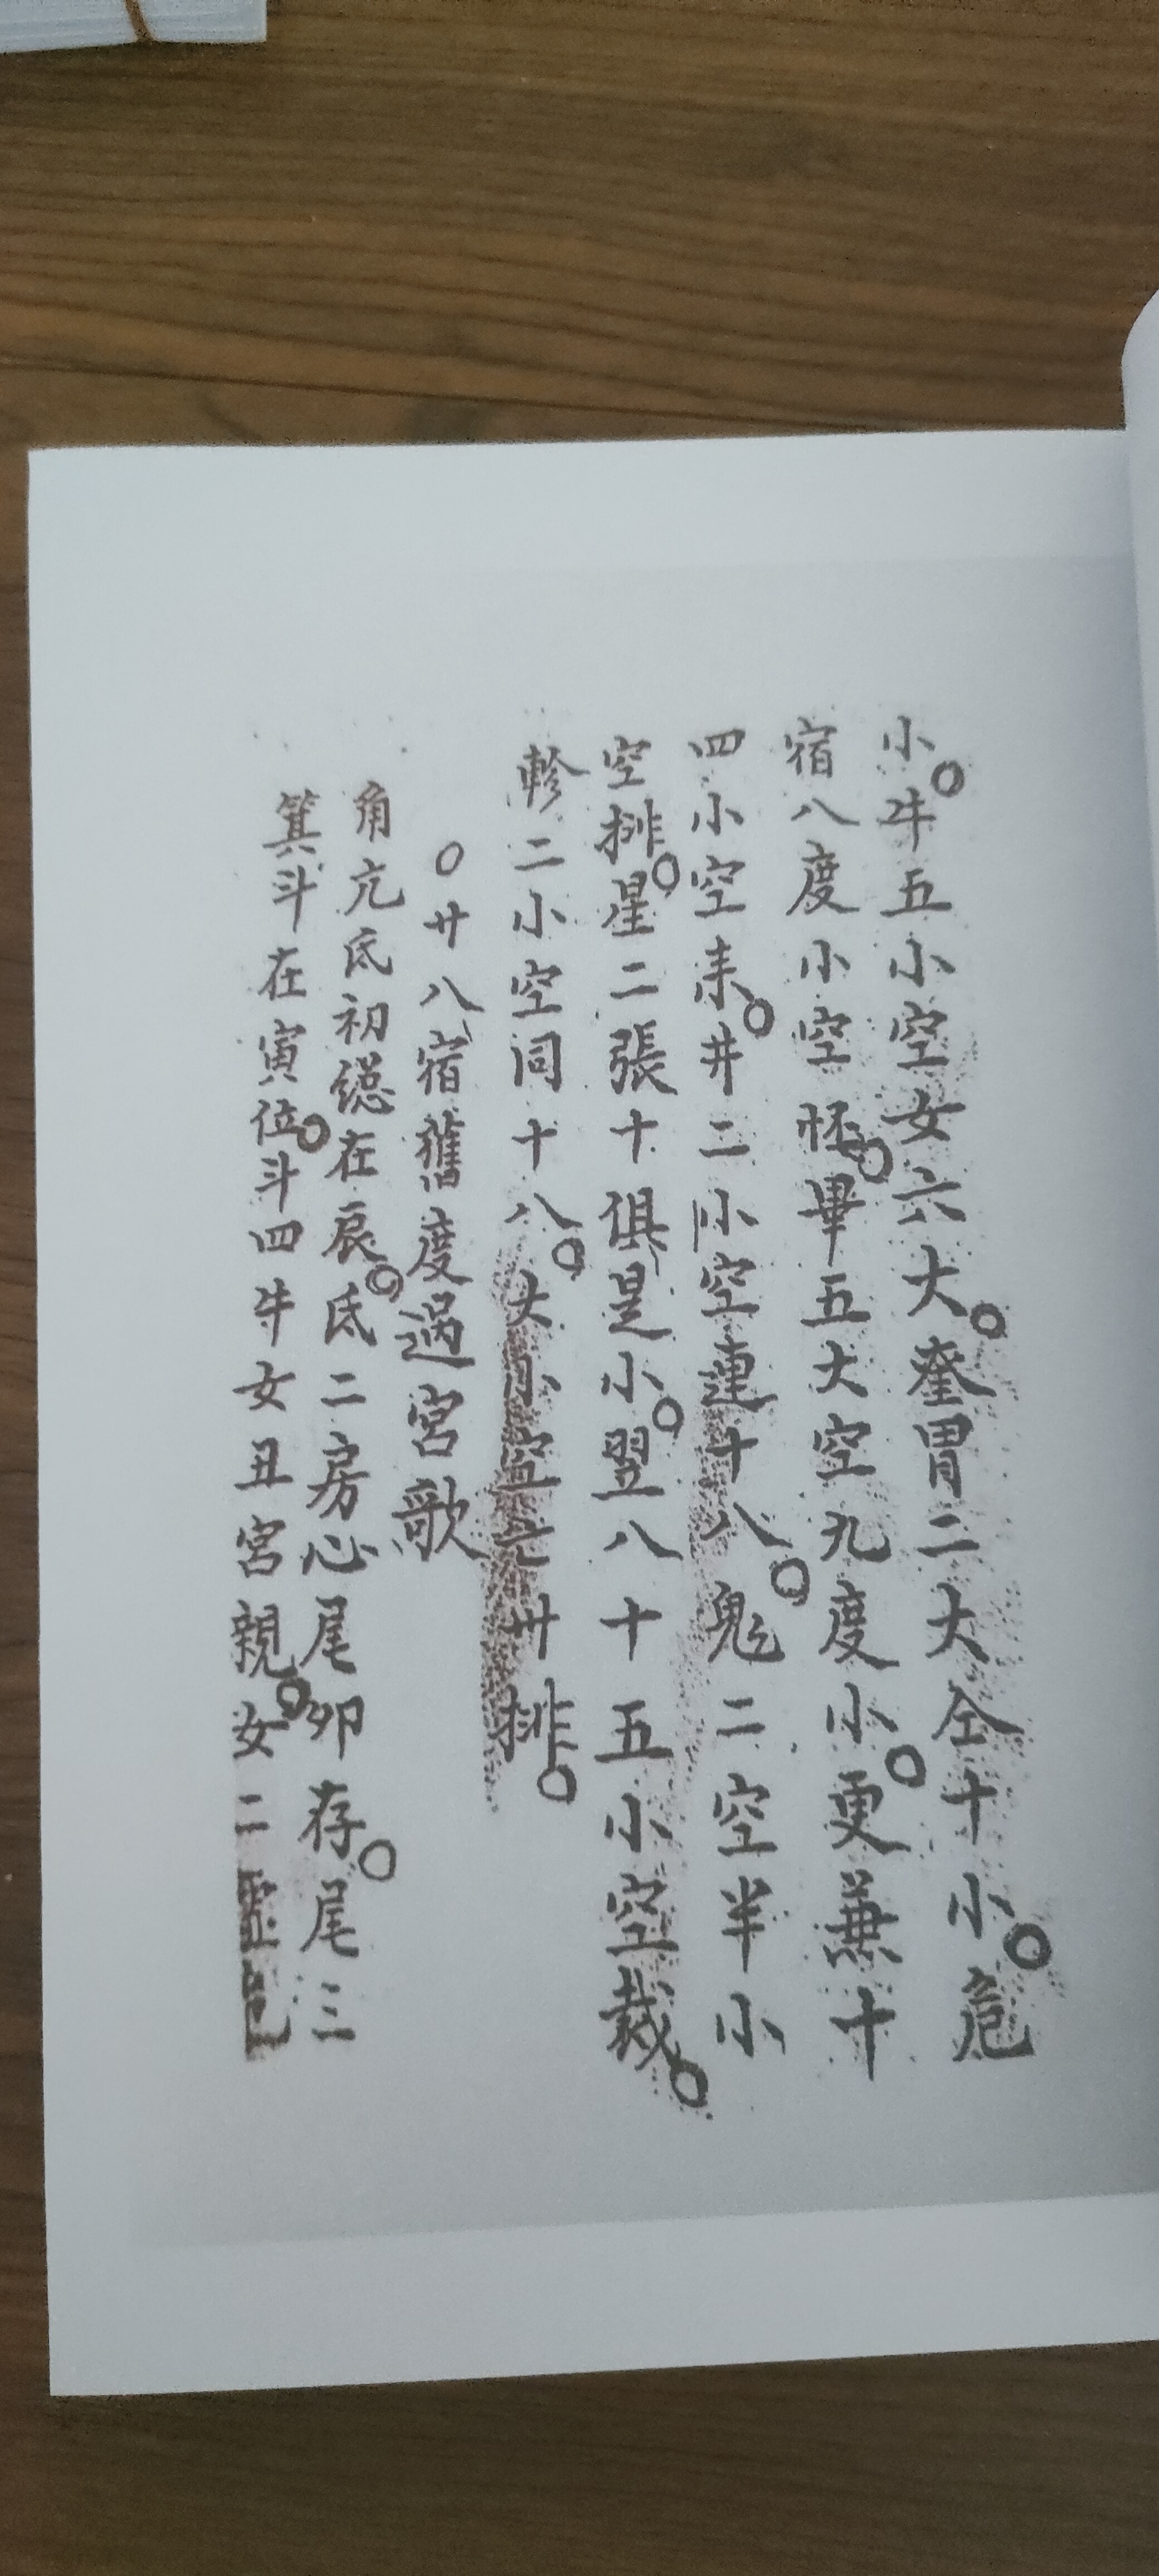 小。牛五小空女六大。奎胃二大仝十小。危
宿八度小空怀。畢五大空九度小。更兼十
四小空来。井二小空連十八。鬼二空半小
空排。星二張十俱是小。翌八十五小空裁。
軫二小空同十八。大小空亡廿排。
○廿八宿舊度過宮歌
角亢氐初縂在辰。氐二房心尾卯存。尾三
箕斗在寅位。斗四牛女丑宮親。女二虚危